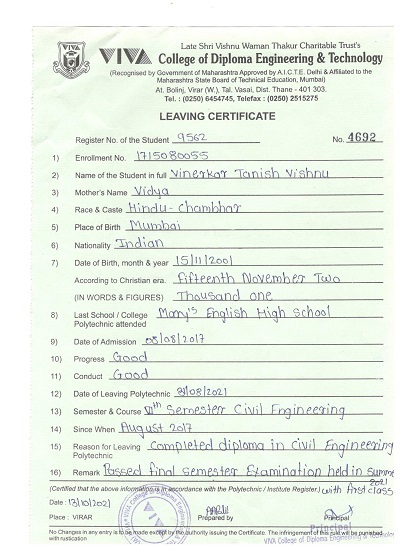 Late Shri Vishnu Waman Thakur Charitable Trust's
VIVA College of Diploma Engineering & Technology
(Recognised by Government of Maharashtra Approved by A.I.C.T.E. Delhi & Affiliated to the
Maharashtra State Board of Technical Education, Mumbai)
At. Bolinj, Virar (W.), Tal. Vasai, Dist. Thane - 401 303.
Tel. : (0250) 6454745, Telefax : (0250) 2515275
LEAVING CERTIFICATE
Register No. of the Student 9562 No. 4692
1) Enrollment No. 1715080055
2) Name of the Student in full Vinerkar Tanish Vishnu
3) Mother's Name Vidya
4) Race & Caste Hindu-Chambhar
5) Place of Birth Mumbai
6) Nationality Indian
7) Date of Birth, month & year 15/11/2001
According to Christian era. Fifteenth November Two
(IN WORDS & FIGURES) Thousand one
8) Last School / College Mary's English High School
Polytechnic attended
9) Date of Admission 05/08/2017
10) Progress Good
11) Conduct Good
12) Date of Leaving Polytechnic 31/08/2021
13) Semester & Course VIth Semester Civil Engineering
14) Since When August 2017
15) Reason for Leaving Completed diploma in Civil Engineering
Polytechnic
16) Remark Passed final semester Examination held in Summer
2021
(Certified that the above information is in accordance with the Polytechnic / Institute Register.) with first class
Date : 13/10/2021
Place : VIRAR Prepared by Principal
Principal
VIVA College of Diploma Engineering &
No Changes in any entry is to be made except by the authority issuing the Certificate. The infringement of this rule will be punished
with rustication